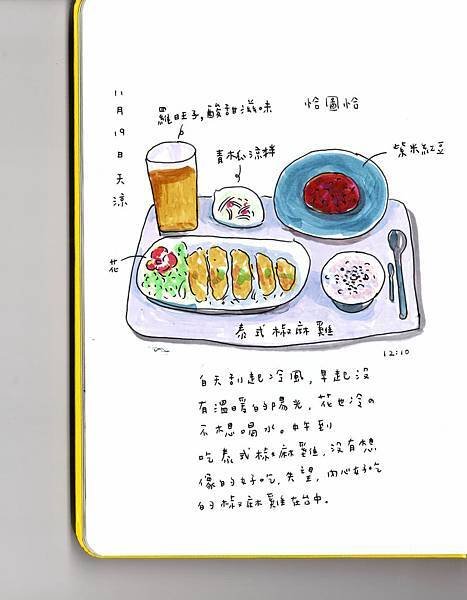 11月19日天涼
羅旺子,酸甜滋味
恰圖恰
青木瓜涼拌
紫米紅豆
花
泰式椒麻雞
12:10
白天刮起冷風,早起沒
有溫暖的陽光,花也冷的
不想喝水。中午到
吃泰式椒麻雞,沒有想
像的好吃,失望,內心好吃
的椒麻雞在台中。